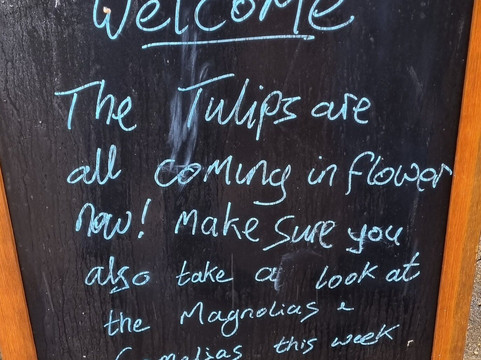 Welcome
The Tulips are
all coming in flower
now! Make sure you
also take a look at
the Magnolias &
Camelias this week